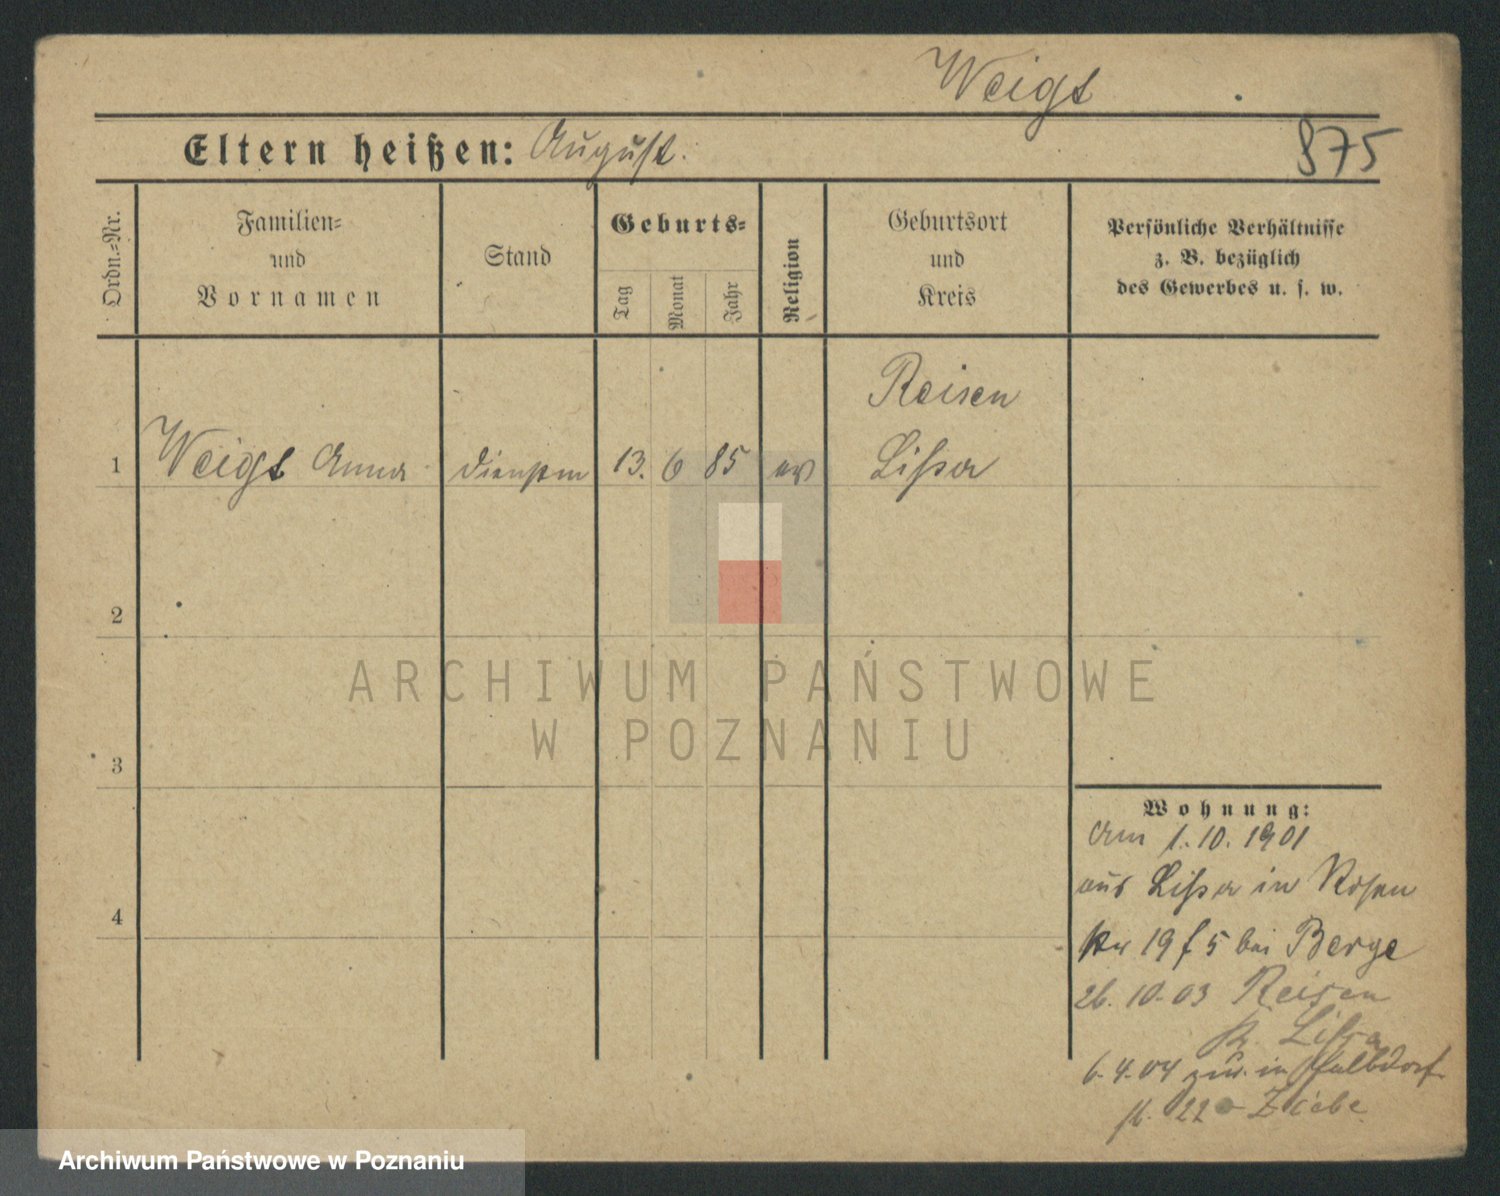 Weigt
Eltern heißen: August.
875
Ordn.=Nr.
Familien=
und
Vornamen
Stand
Geburts=
Tag
Monat
Jahr
Religion
Geburtsort
und
Kreis
Persönliche Verhältnisse
z. B. bezüglich
des Gewerbes u. s. w.
Reisen
1 Weigt Anna dienstm 13. 6 85 ev Lissa
2
ARCHIWUM PAŃSTWOWE
W POZNANIU
3
Wohnung:
Am 1.10.1901
aus Lissa in Posen
19 5 bei Berge
26.10.03 Reisen
Kr. Lissa
4
6.4.04 in
22
Archiwum Państwowe w Poznaniu